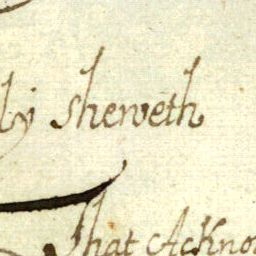 ly sheweth
That Ackno